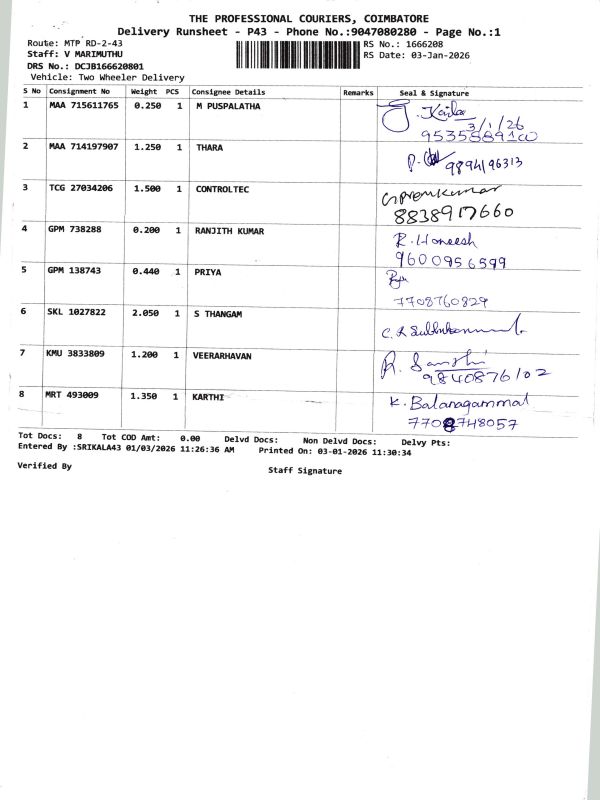 THE PROFESSIONAL COURIERS, COIMBATORE
Delivery Runsheet - P43 - Phone No.:9047080280 - Page No.:1
Route: MTP RD-2-43
Staff: V MARIMUTHU
DRS No.: DCJB166620801
Vehicle: Two Wheeler Delivery
RS No.: 1666208
RS Date: 03-Jan-2026
S No Consignment No Weight PCS Consignee Details Remarks Seal & Signature
1 MAA 715611765 0.250 1 M PUSPALATHA
3/1/26
2 MAA 714197907 1.250 1 THARA
9894196313
3 TCG 27034206 1.500 1 CONTROLTEC
8838917660
4 GPM 738288 0.200 1 RANJITH KUMAR R. Haneesh
9600956599
5 GPM 138743 0.440 1 PRIYA
7708760829
6 SKL 1027822 2.050 1 S THANGAM
7 KMU 3833809 1.200 1 VEERARHAVAN
9840876102
8 MRT 493009 1.350 1 KARTHI K. Balanagammal
7708748057
Tot Docs: 8 Tot COD Amt: 0.00 Delvd Docs: Non Delvd Docs: Delvy Pts:
Entered By :SRIKALA43 01/03/2026 11:26:36 AM Printed On: 03-01-2026 11:30:34
Verified By Staff Signature